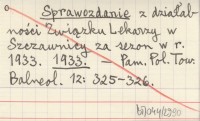 Sprawozdanie z działal-
ności Związku Lekarzy w
Szczawnicy za sezon w r.
1933. 1933. — Pam. Pol. Tow.
Balneol. 12: 325-326.